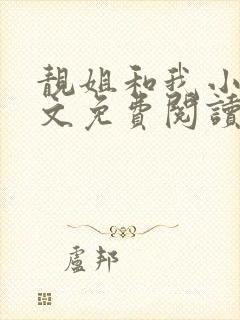 靚姐和我小
文免費閱讀
盧邦